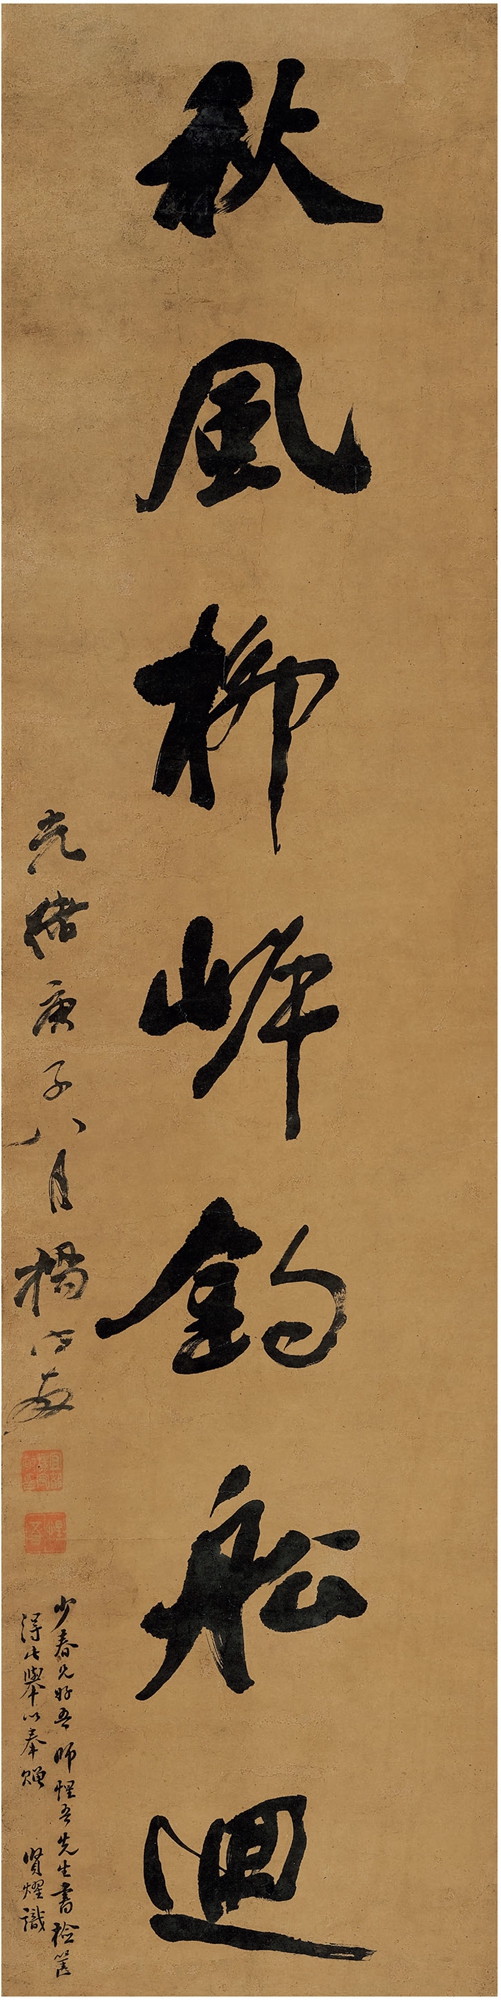 秋風柳岸釣船迴
光緒庚子八月楊守敬
少春兄好吾師惺吾先生書檢篋
得此舉以奉贈 賢燿識